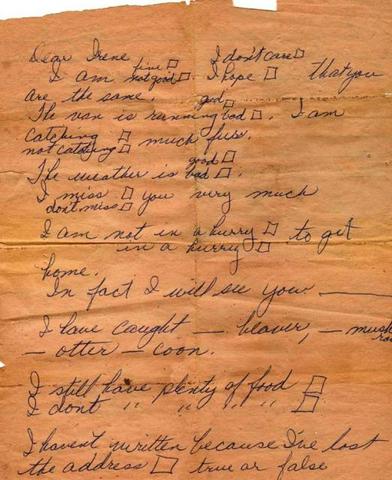 Dear Irene
I am fine □ not good □ I hope □ I dont care □ that you
are the same.
The van is running good □ bad □. I am
catching □ not catching □ much furs.
The weather is good □ bad □.
I miss □ dont miss □ you very much
I am not in a hurry □ in a hurry □ to get
home.
In fact I will see you ——
I have caught — beaver, — muskrat
— otter — coon.
I still have plenty of food □
I dont " " " " □
I havent written because I've lost
the address □ true or false